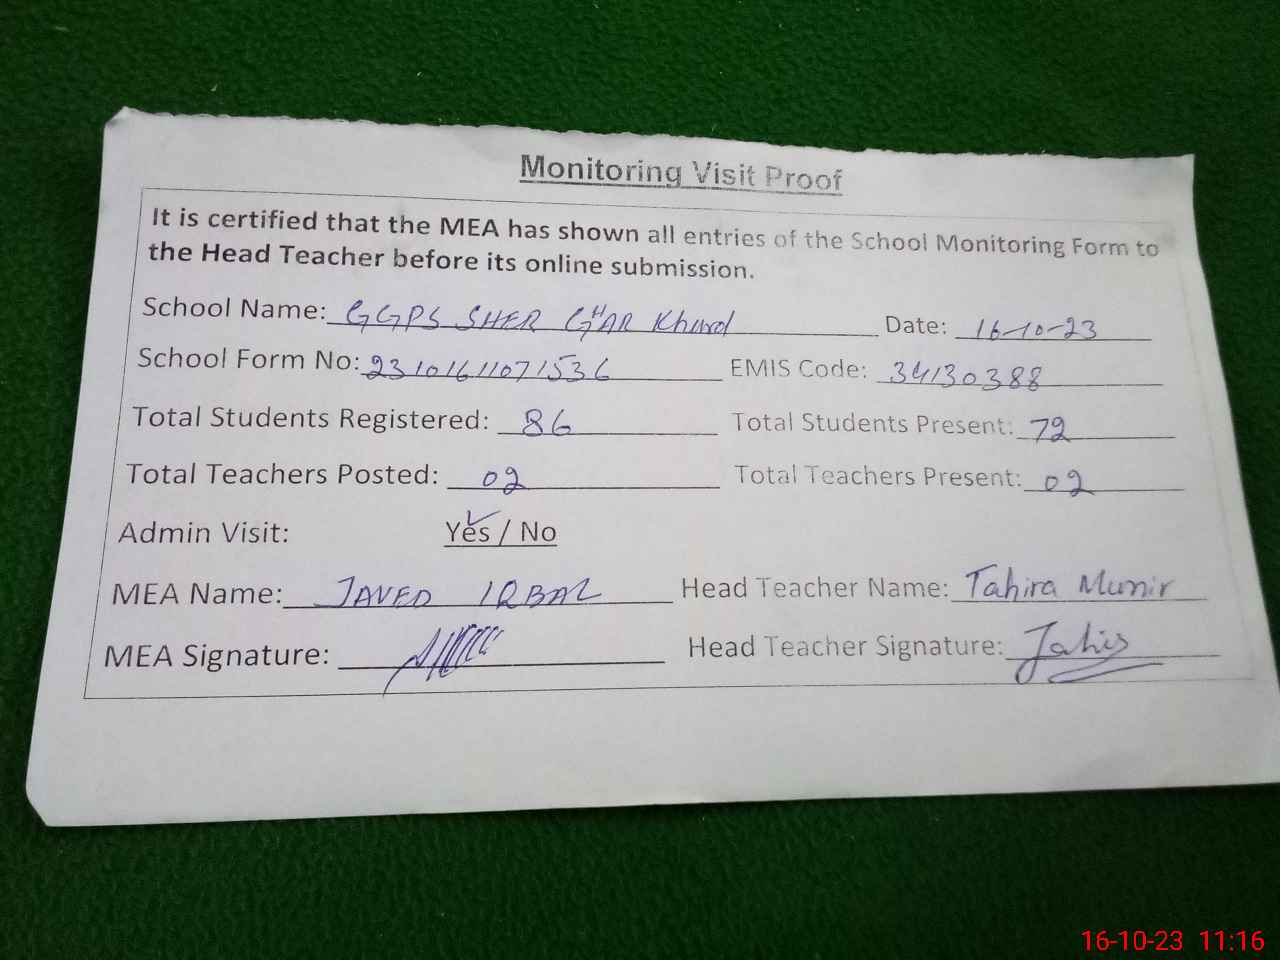 Monitoring Visit Proof
It is certified that the MEA has shown all entries of the School Monitoring Form to
the Head Teacher before its online submission.
School Name: GGPS SHER GHAR Khurd Date: 16-10-23
School Form No: 23101611071536 EMIS Code: 34130388
Total Students Registered: 86 Total Students Present: 72
Total Teachers Posted: 02 Total Teachers Present: 02
Admin Visit: Yes / No
MEA Name: JAVED IQBAL Head Teacher Name: Tahira Munir
MEA Signature: Head Teacher Signature:
16-10-23 11:16